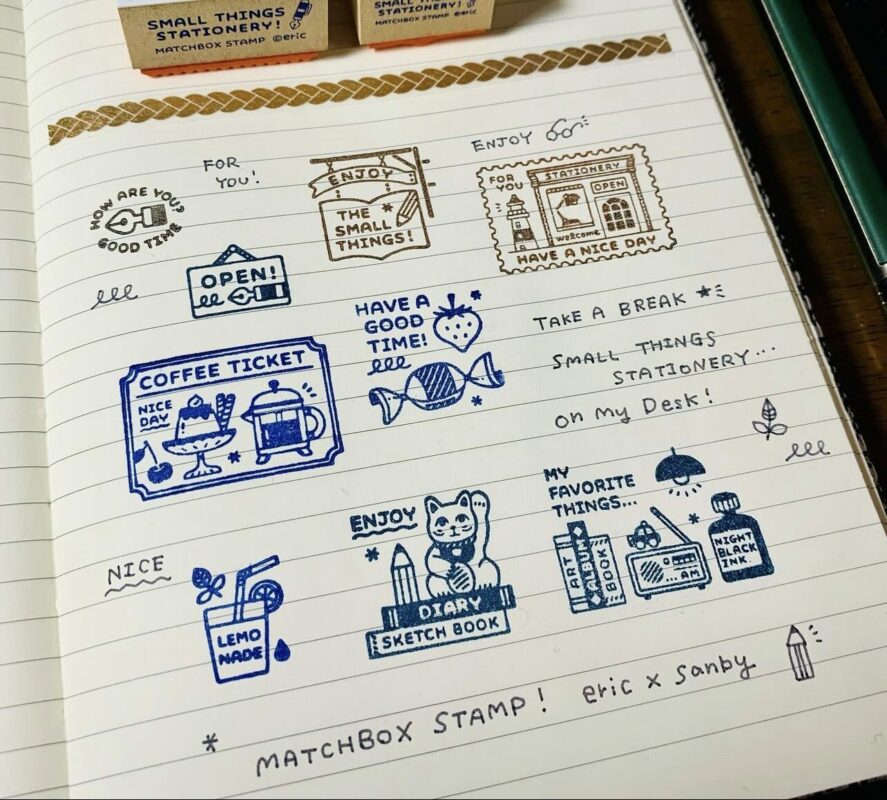 SMALL THINGS
STATIONERY!
MATCHBOX STAMP ©eric
SMALL THINGS
STATIONERY!
MATCHBOX STAMP ©eric
FOR
YOU!
HOW ARE YOU?
GOOD TIME
ENJOY
THE
SMALL
THINGS!
ENJOY
FOR
YOU
STATIONERY
OPEN
welcome
HAVE A NICE DAY
OPEN!
HAVE A
GOOD
TIME!
TAKE A BREAK
SMALL THINGS
STATIONERY...
on my Desk!
COFFEE TICKET
NICE
DAY
NICE
LEMO
NADE
ENJOY
DIARY
SKETCH BOOK
MY
FAVORITE
THINGS...
ART
ALBUM
BOOK
...AM
NIGHT
BLACK
INK.
MATCHBOX STAMP! eric x sanby